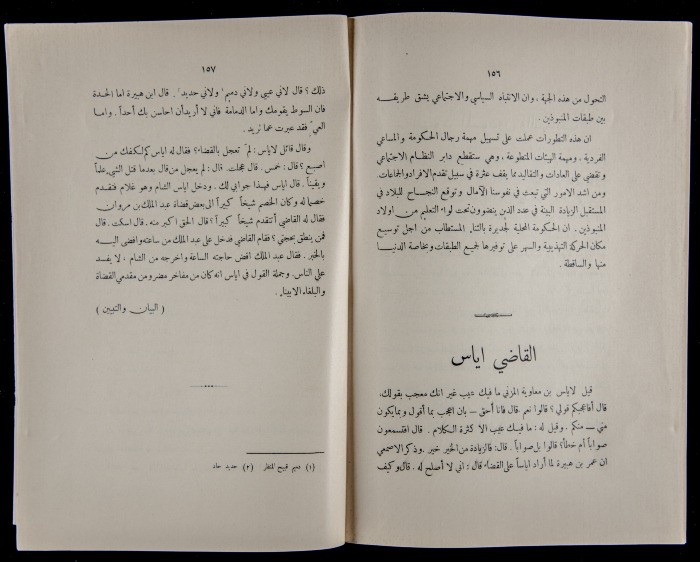 ١٥٦
التحول من هذه الجهة ، وان الانتباه السياسي والاجتماعي يشق طريقه
بين طبقات المنبوذين .
ان هذه التطورات عملت على تسهيل مهمة رجال الحكومة والمساعي
الفردية ، ومهمة الهيئات المتطوعة ، وهي ستقطع دابر النظام الاجتماعي
وتقضي على العادات والتقاليد مما يقف عثرة في سبيل تقدم الافراد والجماعات.
ومن اشد الامور التي تبعث في نفوسنا الآمال وتوقع النجاح للبلاد في
المستقبل الزيادة البينة في عدد الذين ينضوون تحت لواء التعليم من اولاد
المنبوذين . ان الحكومة المحلية لجديرة بالثناء المستطاب من اجل توسيع
مكان الحركة التهذيبية والسهر على توفيرها لجميع الطبقات وبخاصة الدنيا
منها والساقطة .
القاضي اياس
قيل لاياس بن معاوية المزني ما فيك عيب غير انك معجب بقولك.
قال أفاعجبكم قولي ؟ قالوا نعم .قال فانا أحق – بان اعجب بما أقول وبما يكون
مني – منكم . وقيل له : ما فيك عيب الا كثرة الكلام . قال افتسمعون
صواباً أم خطأ؟ قالوا بل صواباً . قال: فالزيادة من الخير خير .وذكر الاصمعي
ان عمر بن هبيرة لما أراد اياساً على القضاء قال : اني لا أصلح له . قال وكيف
١٥٧
ذلك ؟ قال لاني عيي ولاني دميم ولاني حديد . قال ابن هبيرة اما الحدة
فان السوط يقومك واما الدمامة فاني لا أريد أن احاسن بك أحداً . واما
العي فقد عبرت عما تريد .
وقال قائل لاياس : لم تعجل بالقضاء؟ فقال له اياس كم لكفك من
اصبع ؟ قال: خمس . قال عجلت. قال : لم يعجل من قال بعد ما قتل الشيء علماً
ويقيناً . قال اياس فهذا جوابي لك . ودخل اياس الشام وهو غلام فتقدم
خصما له وكان الخصم شيخاً كبيراً الى بعض قضاة عبد الملك بن مروان
فقال له القاضي أتتقدم شيخاً كبيراً ؟ قال الحق اكبر منه . قال اسكت . قال
فمن ينطق بحجتي ؟ فقام القاضي فدخل على عبد الملك من ساعته وافضى اليه
بالخبر . فقال عبد الملك اقض حاجته الساعة واخرجه من الشام ، لا يفسد
علي الناس. وجملة القول في اياس انه كان من مفاخر مضر ومن مقدمي القضاة
والبلغاء الابيناء .
( البيان والتبيين )
(١) دميم قبيح المنظر (٢) حديد حاد